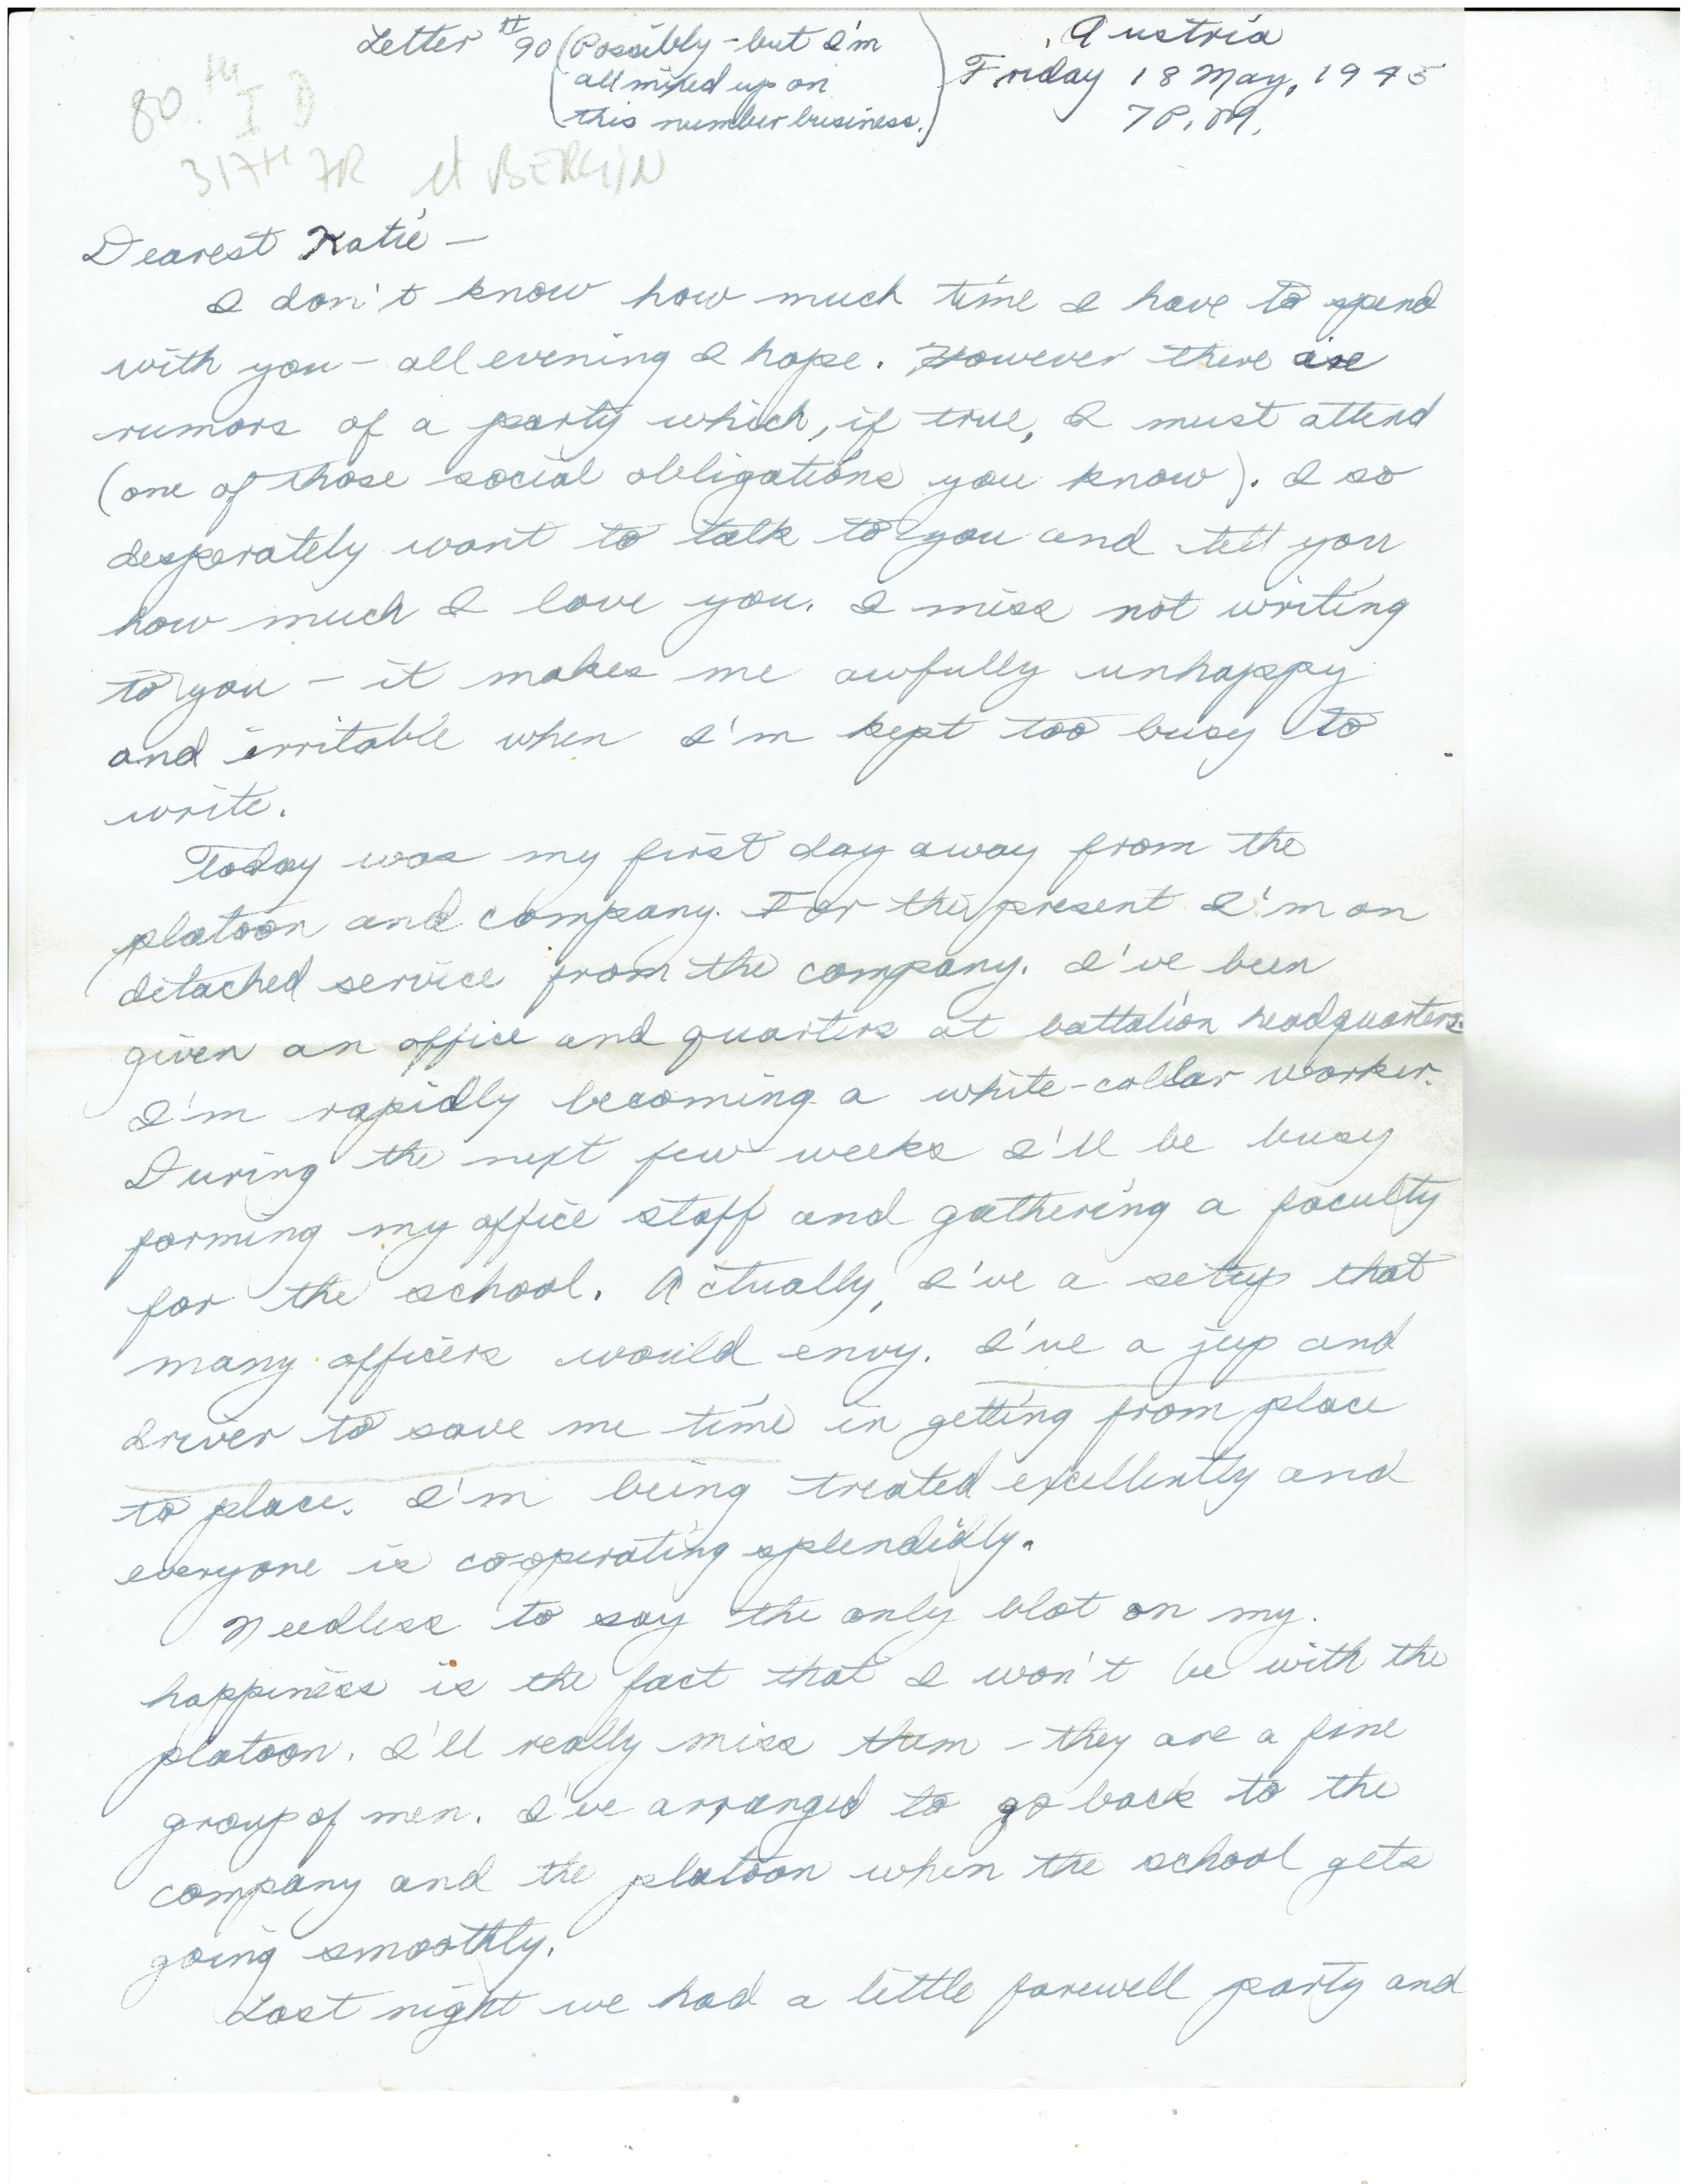 Letter #90 (Possibly - but I'm
all mixed up on
this number business.)
Austria
Friday 18 May, 1945
7 P.M.
80th I D
317th IR
BERLIN
Dearest Katie —
I don't know how much time I have to spend
with you - all evening I hope. However there are
rumors of a party which, if true, I must attend
(one of those social obligations you know). I so
desperately want to talk to you and tell you
how much I love you. I miss not writing
to you - it makes me awfully unhappy
and irritable when I'm kept too busy to
write.
Today was my first day away from the
platoon and company. For the present I'm on
detached service from the company. I've been
given an office and quarters at battalion headquarters.
I'm rapidly becoming a white-collar worker.
During the next few weeks I'll be busy
forming my office staff and gathering a faculty
for the school. Actually, I've a setup that
many officers would envy. I've a jeep and
driver to save me time in getting from place
to place. I'm being treated excellently and
everyone is cooperating splendidly.
Needless to say the only blot on my
happiness is the fact that I won't be with the
platoon. I'll really miss them - they are a fine
group of men. I've arranged to go back to the
company and the platoon when the school gets
going smoothly.
Last night we had a little farewell party and